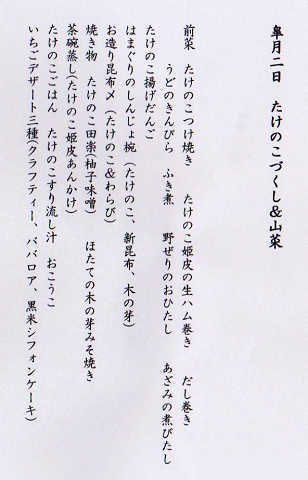 皐月二日　たけのこづくし＆山菜
前菜　たけのこつけ焼き　たけのこ姫皮の生ハム巻き　だし巻き
うどのきんぴら　ふき煮　野ぜりのおひたし　あざみの煮びたし
たけのこ揚げだんご
はまぐりのしんじょ椀（たけのこ、新昆布、木の芽）
お造り昆布〆（たけのこ＆わらび）
焼き物　たけのこ田楽(柚子味噌)　ほたての木の芽みそ焼き
茶碗蒸し(たけのこ姫皮あんかけ)
たけのこごはん　たけのこすり流し汁　おこうこ
いちごデザート三種(クラフティー、ババロア、黒米シフォンケーキ)